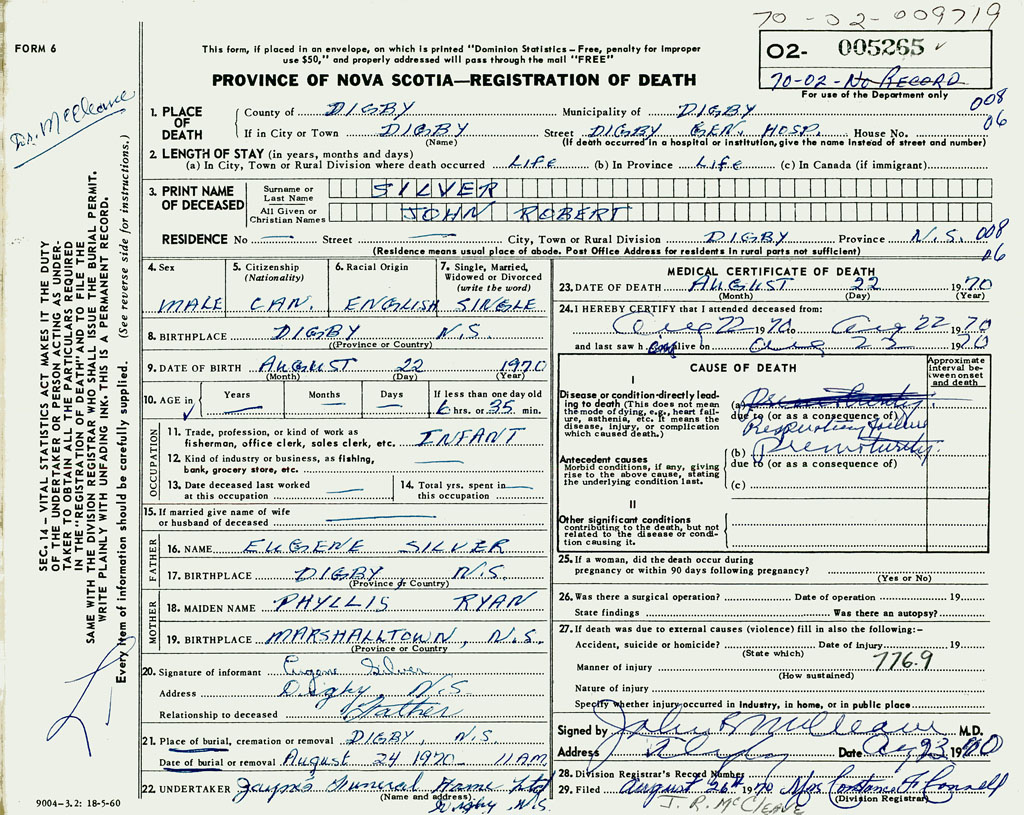 70-02-009719
FORM 6
This form, if placed in an envelope, on which is printed "Dominion Statistics – Free, penalty for improper
use $50," and properly addressed will pass through the mail "FREE"
PROVINCE OF NOVA SCOTIA—REGISTRATION OF DEATH
02- 005265
70-02-No RECORD
For use of the Department only
008
06
Dr. McCleave
1. PLACE OF DEATH
County of DIGBY Municipality of DIGBY
If in City or Town DIGBY Street DIGBY GEN. HOSP. House No.
(Name) (If death occurred in a hospital or institution, give the name instead of street and number)
2. LENGTH OF STAY (in years, months and days)
(a) In City, Town or Rural Division where death occurred LIFE (b) In Province LIFE (c) In Canada (if immigrant)
3. PRINT NAME OF DECEASED
Surname or Last Name SILVER
All Given or Christian Names JOHN ROBERT
RESIDENCE No — Street — City, Town or Rural Division DIGBY Province N.S. 008
06
(Residence means usual place of abode. Post Office Address for residents in rural parts not sufficient)
4. Sex
MALE
5. Citizenship
(Nationality)
CAN.
6. Racial Origin
ENGLISH
7. Single, Married,
Widowed or Divorced
(write the word)
SINGLE
8. BIRTHPLACE DIGBY N.S.
(Province or Country)
9. DATE OF BIRTH AUGUST 22 1970
(Month) (Day) (Year)
10. AGE in
Years Months Days If less than one day old
6 hrs. or 35 min.
OCCUPATION
11. Trade, profession, or kind of work as
fisherman, office clerk, sales clerk, etc. INFANT
12. Kind of industry or business, as fishing,
bank, grocery store, etc. —
13. Date deceased last worked
at this occupation —
14. Total yrs. spent in
this occupation —
15. If married give name of wife
or husband of deceased —
FATHER
16. NAME EUGENE SILVER
17. BIRTHPLACE DIGBY N.S.
(Province or Country)
MOTHER
18. MAIDEN NAME PHYLLIS RYAN
19. BIRTHPLACE MARSHALLTOWN, N.S.
(Province or Country)
20. Signature of informant Eugene Silver
Address Digby, N.S.
Relationship to deceased Father
21. Place of burial, cremation or removal DIGBY N.S
Date of burial or removal August 24 1970 11 AM
22. UNDERTAKER Jayne's Funeral Home Ltd
(Name and address)
Digby N.S.
MEDICAL CERTIFICATE OF DEATH
23. DATE OF DEATH AUGUST 22 1970
(Month) (Day) (Year)
24. I HEREBY CERTIFY that I attended deceased from:
Aug 22 1970 to Aug 22 1970
and last saw h alive on Aug 22 1970
CAUSE OF DEATH
Approximate
interval be-
tween onset
and death
I
Disease or condition directly lead-
ing to death (This does not mean
the mode of dying, e.g., heart fail-
ure, asthenia, etc. It means the
disease, injury, or complication
which caused death.)
(a)
due to (or as a consequence of)
Respiratory failure
Antecedent causes
Morbid conditions, if any, giving
rise to the above cause, stating
the underlying condition last.
(b) Prematurity.
due to (or as a consequence of)
(c)
II
Other significant conditions
contributing to the death, but not
related to the disease or condi-
tion causing it.
25. If a woman, did the death occur during
pregnancy or within 90 days following pregnancy?
(Yes or No)
26. Was there a surgical operation? Date of operation 19
State findings Was there an autopsy?
27. If death was due to external causes (violence) fill in also the following:–
Accident, suicide or homicide? Date of injury 19
(State which)
Manner of injury 776.9
(How sustained)
Nature of injury
Specify whether injury occurred in industry, in home, or in public place
Signed by John R McCleave M.D.
Address Digby Date Aug 23 1970
28. Division Registrar's Record Number
29. Filed August 26th 1970 Mrs Constance F Connell
(Division Registrar)
J. R. McCLEAVE
SEC. 14 – VITAL STATISTICS ACT MAKES IT THE DUTY
OF THE UNDERTAKER OR PERSON ACTING AS UNDER-
TAKER TO OBTAIN ALL THE PARTICULARS REQUIRED
IN THE "REGISTRATION OF DEATH" AND TO FILE THE
SAME WITH THE DIVISION REGISTRAR WHO SHALL ISSUE THE BURIAL PERMIT.
WRITE PLAINLY WITH UNFADING INK. THIS IS A PERMANENT RECORD.
Every item of information should be carefully supplied. (See reverse side for instructions.)
9004-3.2: 18-5-60